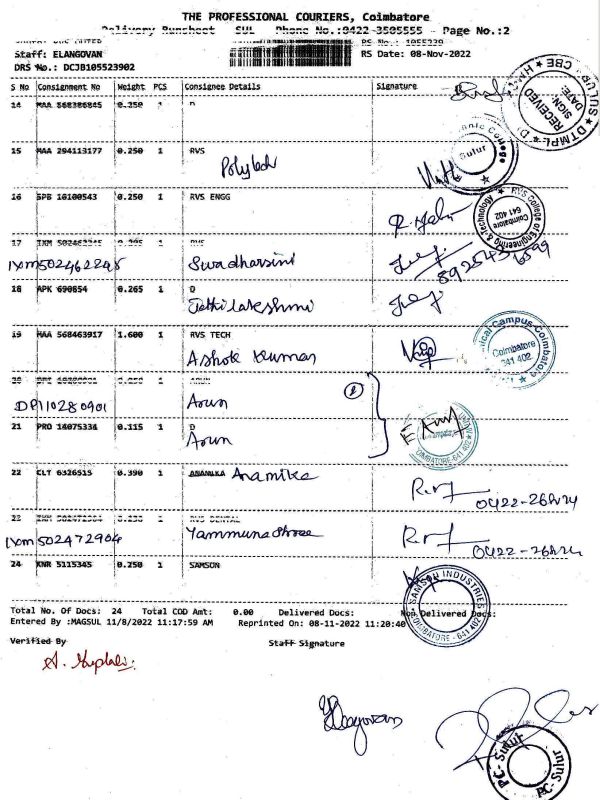 THE PROFESSIONAL COURIERS, Coimbatore
Delivery Runsheet SUL Phone No.:0422-3505555 - Page No.:2
RS No.: 1055239
Staff: ELANGOVAN
RS Date: 08-Nov-2022
DRS No.: DCJB105523902
S No Consignment No Weight PCS Consignee Details Signature
14 MAA 568386845 0.250 1 D
15 MAA 294113177 0.250 1 RVS
16 GPB 16100543 0.250 1 RVS ENGG
17 IXM 502462245 1 RVS
IXm502462245 Swadharsini
892545
18 APK 690854 0.265 1 D
Jothilakshmi
19 MAA 568463917 1.600 1 RVS TECH
Ashok Kumar
20 ARUN
DPI10280901 Arun
21 PRO 14075334 0.115 1 D
Arun
22 CLT 6326515 0.390 1 ANAMIKA Anamika
0422-26
23 IXM 502472904 1 RVS DENTAL
IXm502472904 Yammunashree
0422-26
24 KNR 5115345 0.250 1 SAMSON
Total No. Of Docs: 24 Total COD Amt: 0.00 Delivered Docs: Non Delivered Docs:
Entered By :MAGSUL 11/8/2022 11:17:59 AM Reprinted On: 08-11-2022 11:20:40
Verified By Staff Signature
Elangovan
RECEIVED
SIGN
DATE:
DTMPL
Sulur
RVS College of Engineering & Technology
Coimbatore
641 402
Campus Coimbatore
Coimbatore
641 402
COIMBATORE-641
SAMSON INDUSTRIES
COIMBATORE - 641 402
PC-Sulur
PC-Sulur